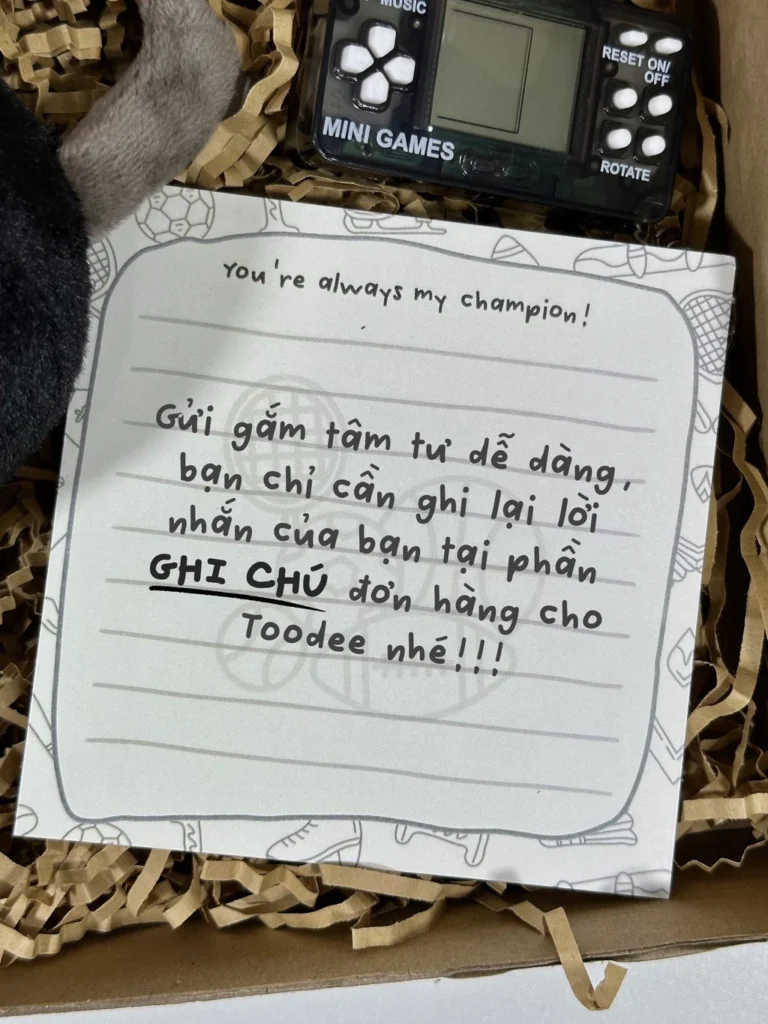 MUSIC
RESET ON/
OFF
MINI GAMES
ROTATE
You're always my champion!
Gửi gắm tâm tư dễ dàng,
bạn chỉ cần ghi lại lời
nhắn của bạn tại phần
GHI CHÚ đơn hàng cho
Toodee nhé!!!